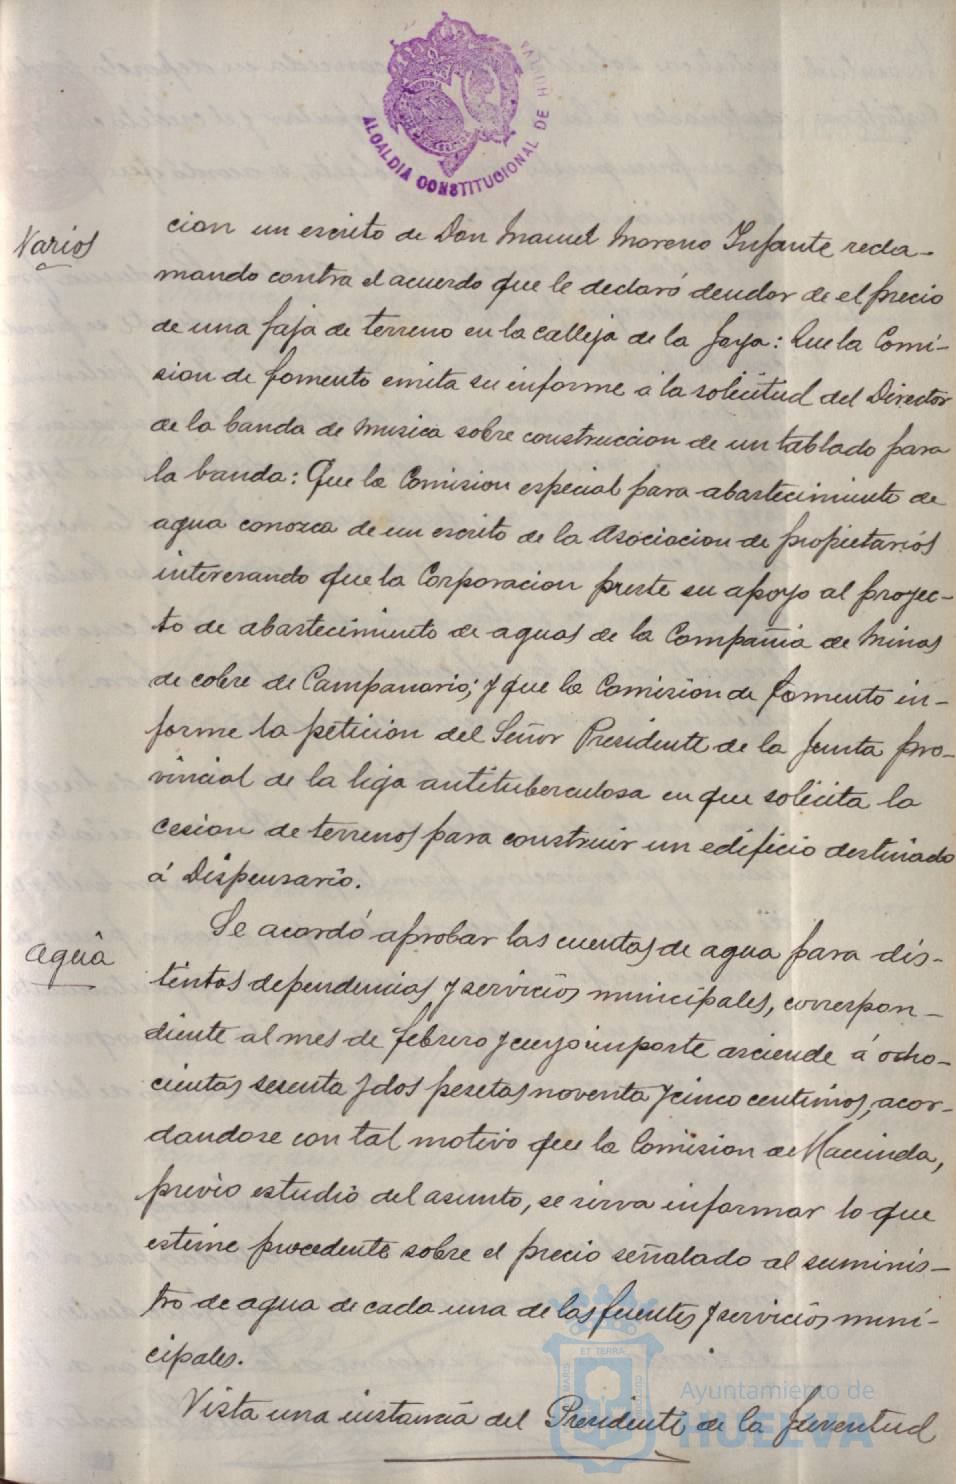 ALCALDIA CONSTITUCIONAL DE HUELVA
Varios
cion un escrito de Don Manuel Moreno Infante recla-
mando contra el acuerdo que le declaró deudor de el precio
de una faja de terreno en la calleja de la Joya: Que la Comi-
sion de fomento emita su informe á la solicitud del Director
de la banda de musica sobre construccion de un tablado para
la banda: Que la Comision especial para abastecimiento de
agua conozca de un escrito de la Asociacion de propietarios
interesando que la Corporacion preste su apoyo al proyec-
to de abastecimiento de aguas de la Compañia de Minas
de cobre de Campanario; y que la Comision de fomento in-
forme la peticion del Señor Presidente de la Junta pro-
vincial de la liga antituberculosa en que solicita la
cesion de terrenos para construir un edificio destinado
á Dispensario.
agua
Se acordó aprobar las cuentas de agua para dis-
tintas dependencias y servicios municipales, correspon-
diente al mes de febrero y cuyo importe asciende á ocho-
cientas sesenta y dos pesetas noventa y cinco centimos, acor-
dandose con tal motivo que la Comision de Hacienda,
previo estudio del asunto, se sirva informar lo que
estime procedente sobre el precio señalado al suminis-
tro de agua de cada una de las fuentes y servicios muni-
cipales.
Vista una instancia del Presidente de la Juventud
ET TERRA
MARIS
CUSTODIA
Ayuntamiento de
HUELVA